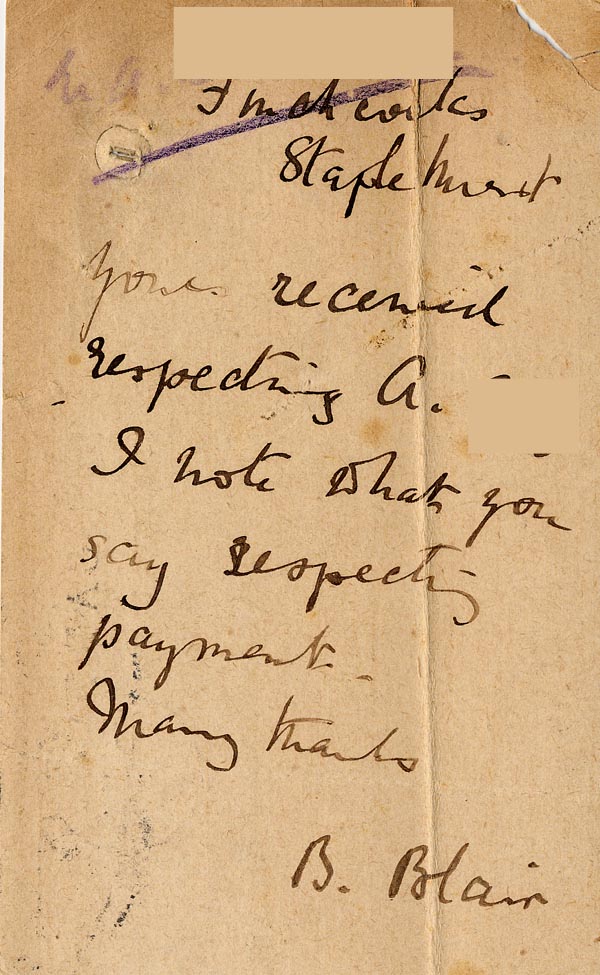 Finchcocks
Staplehurst
Yours received
respecting A.
I note what you
say respecting
payment.
Many thanks
B. Blair